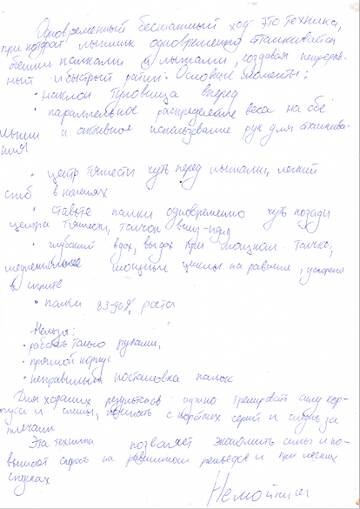 Одновременный бесшажный ход это техника,
при которой лыжник одновременно отталкивается
обеими палками и лыжами, создавая непрерыв-
ный и быстрый ритм. Основные элементы:
• наклон туловища вперед
• параллельное распределение веса на обе
лыжи и активное использование рук для отталкива-
ния
• центр тяжести чуть перед лыжами, легкий
сгиб в коленях
• ставьте палки одновременно чуть позади
центра тяжести, толчок вниз-
• глубокий вдох, выдох при мощном толчке,
мощные циклы на равнине, ускорение
в спринте
• палки 83-90% роста
Нельзя:
• работать только руками,
• прямой корпус
• неправильная постановка палок
Для хороших результатов нужно тренировать силу кор-
пуса и спины, начинать с коротких серий и следить за
плечами
Эта техника позволяет экономить силы и по-
высить скорость на равнинном рельефе и при легких
спусках